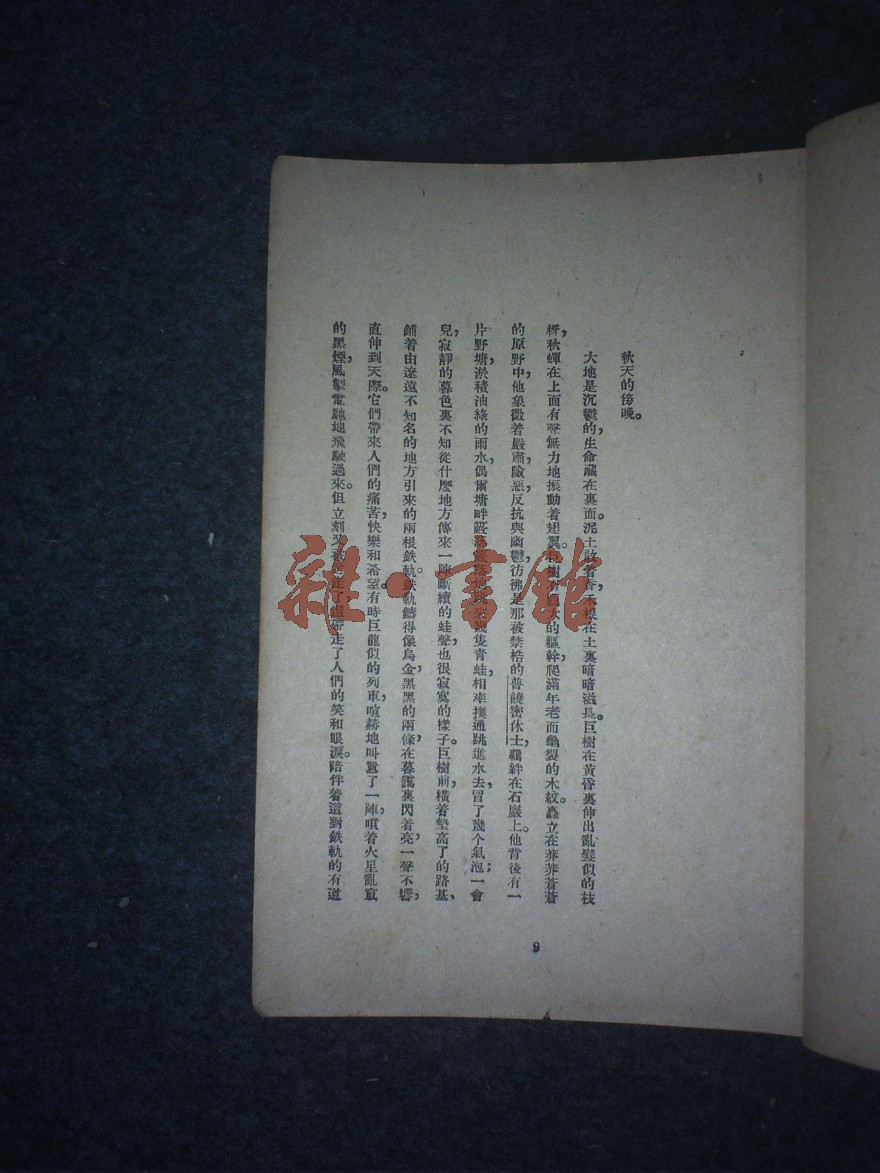 秋天的傍晚。
大地是沉鬱的，生命藏在裏面。泥土在土裏暗暗滋長。巨樹在黃昏裏伸出亂髮似的枝
椏，秋蟬在上面有聲無力地振動着翅翼。的軀幹爬滿年老而龜裂的木紋。矗立在莽莽蒼蒼
的原野中，他象徵着嚴肅，險惡，反抗與幽鬱，彷彿是那被禁梏的普饒密休士，羈絆在石巖上。他背後有一
片野塘，淤積油綠的雨水，偶爾塘畔隻青蛙，相率撲通跳進水去，冒了幾个氣泡；一會
兒，寂靜的暮色裏不知從什麽地方傳來一陣斷續的蛙聲，也很寂寞的樣子。巨樹前，橫着墊高了的路基，
鋪着由遼遠不知名的地方引來的兩根鉄軌。鉄軌鑄得像烏金，黑黑的兩條，在暮靄裏閃着亮，一聲不響，
直伸到天際。它們帶來人們的痛苦，快樂和希望。有時巨龍似的列車，喧赫地叫囂了一陣，噴着火星亂竄
的黑煙，風掣電馳地飛駛過來。但立刻又被走了，帶走了人們的笑和眼淚。陪伴着這對鉄軌的有道
9
雜·書館